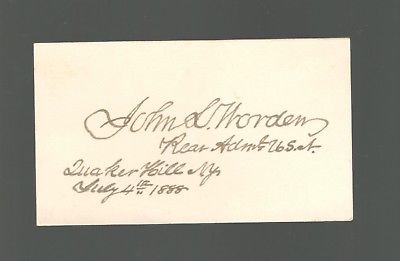 John L. Worden
Rear Adml. U.S.N.
Quaker Hill Ny
July 4th 1888